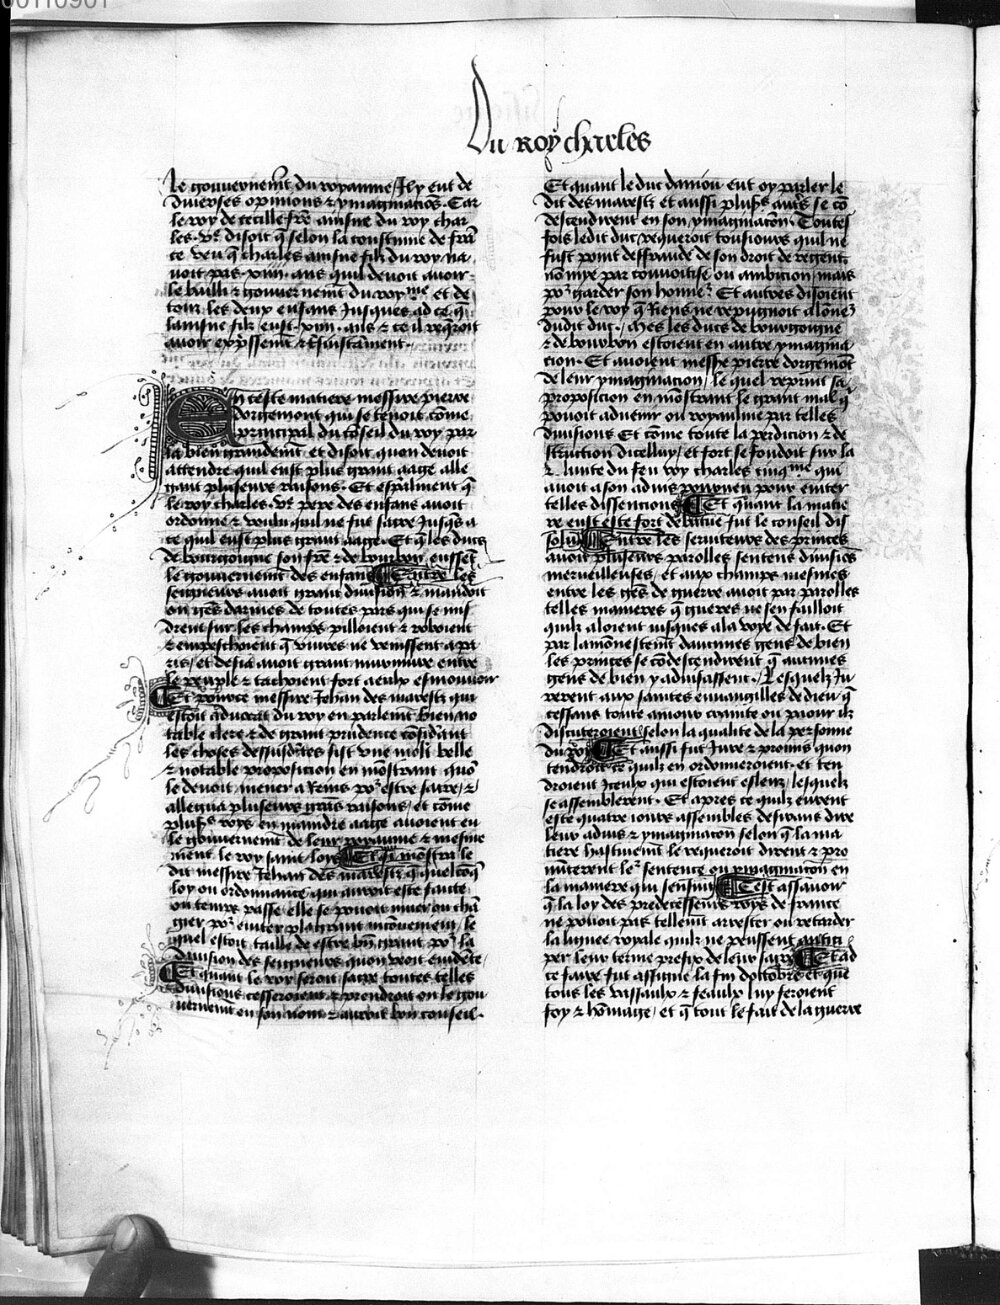 Du roy charles
le gouvernemt du royaume / Il y eut de
diverses opinions & ymaginacōs. Car
le roy de cecille frē ainsne du roy char
les .vͤ. disoit q̄ selon la coustume de frā
ce veu q̄ charles ainsne filz du roy na
voit pas .xiiii. ans quil devoit avoir
le bail & gouvernemt du royᵐᵉ et de
tous les deux enfans Jusques ad ce q̄
lainsne filz eust .xiiii. ans & ce il req̄roit
avoir exp̄ssemt & Instāment.
En ceste matiere messire pierre
dorgemont qui se tenoit cōme
principal du cōseil du roy par
la bien grandemt et disoit quon devoit
attendre quil eust plus grant aage alle
gant pluseurs raisons. Et esp̄alment q̄
le roy charles .vͤ. pere des enfans avoit
ordonne & voulu quil ne fut sacre Jusq̄s a
ce quil eust plus grant aage. Et q̄ les ducs
de bourgoigne son frē & de bourbon eussēt
le gouvernemt des enfans Entre les
seigneurs avoit grant division & mandoit
on gēs darmes de toutes pars qui se mis
drent sur les champs pilloient & roboient
& empeschoient q̄ vivres ne venissent a pa
ris / et desia avoit grant murmure entre
le peuple & tachoient fort a eulx esmouvoir
Et pource messire Jehan des marestz qui
estoit advocat du roy en parlemt bien no
table clerc & de grant prudence cōsidant
les choses dessusdites fist une moli belle
& notable proposicion en mōstrant quō
le devoit mener a Reims pō estre sacre / &
allegua pluseurs grās raisons / et cōme
plusrs roys en maindre aage avoient eu
le gouvernemt de leur royaume & mesme
ment le roy saint loys Et si mōstra le
dit messire Jehan des marestz q̄ quelcōq̄
loy ou ordonnance qui avroit este faicte
ou temps passe elle se povoit muer ou chā
gier pō eviter pl᾽ grant incōvenient / le
quel estoit taille de estre bn̄ grant pō la
division des seigneurs quon veoit evidēte
Et quant le roy seroit sacre toutes telles
divisions cesseroient & prendroit on le gou
vernemt en son nom & avroit bon conseil.
Et quant le duc danjou eut oy parler le
dit des marestz et aussi plusrs autrs se cō
descendirent en son ymaginacōn. Toutes
fois ledit duc requeroit tousiours quil ne
fust point deffraude de son droit de regent
nō mye par convoitise ou ambicion / mais
pō garder son honneur Et autres disoient
pour le roy q̄ Riens ne repugnoit a lonneur
dudit duc. Mes les ducs de bourgoigne
& de bourbon estoient en autre ymagina
cion. Et avoient messire pierre dorgemōt
de leur ymaginacion / le quel reprint sa
proposicion en mōstrant le grant mal q̄
povoit advenir ou royaulme par telles
divisions Et cōme toute la perdicion & de
struction dicelluy / et fort se fondoit sur la
volunte du feu roy charles cinqᵐᵉ qui
avoit a son advis pourveu pour eviter
telles dissentions Et quant la matie
re eust este fort debatue fut le conseil dis
solu Entre les serviteurs des princes
avoit pluseurs parolles sentens divisiōs
merveilleuses / et aux champs mesmes
entre les gēs de guerre avoit par parolles
telles manieres q̄ gueres ne sen failloit
quilz aloient iusques a la voye de fait. Et
par lamōnestemt daucunes gens de bien
les princes se cōdescendirent q̄ aucunes
gens de bien y advisassent. Lesquelz Ju
rerent aux saintes euvangilles de dieu q̄
cessans toute amour crainte ou paour ilz
discuteroient selon la qualite de la personne
du roy Et aussi fut Jure & promis quon
tendroit ce quilz en ordonneroient. et ten
droient Iceulx qui estoient esleuz / lesquelz
se assemblerent. Et apres ce quilz eurent
este quatre iours assembles devans dire
leur advis & ymaginacōn selon q̄ la ma
tiere hastivemt le requeroit dirent & pro
nūcerent lr̄ sentence ou ymaginacōn en
la maniere qui sensuit Cest assavoir
q̄ la loy des predecesseurs roys de france
ne povoit pas tellemt arrester ou retarder
la lignee royale quilz ne peussent antici
per leur terme prefix de leur sacre Et ad
ce faire fut assigne la fin doctobre Et que
tous les vassaulx & feaulx luy feroient
foy & hōmage / et q̄ tout le fait de la guerre